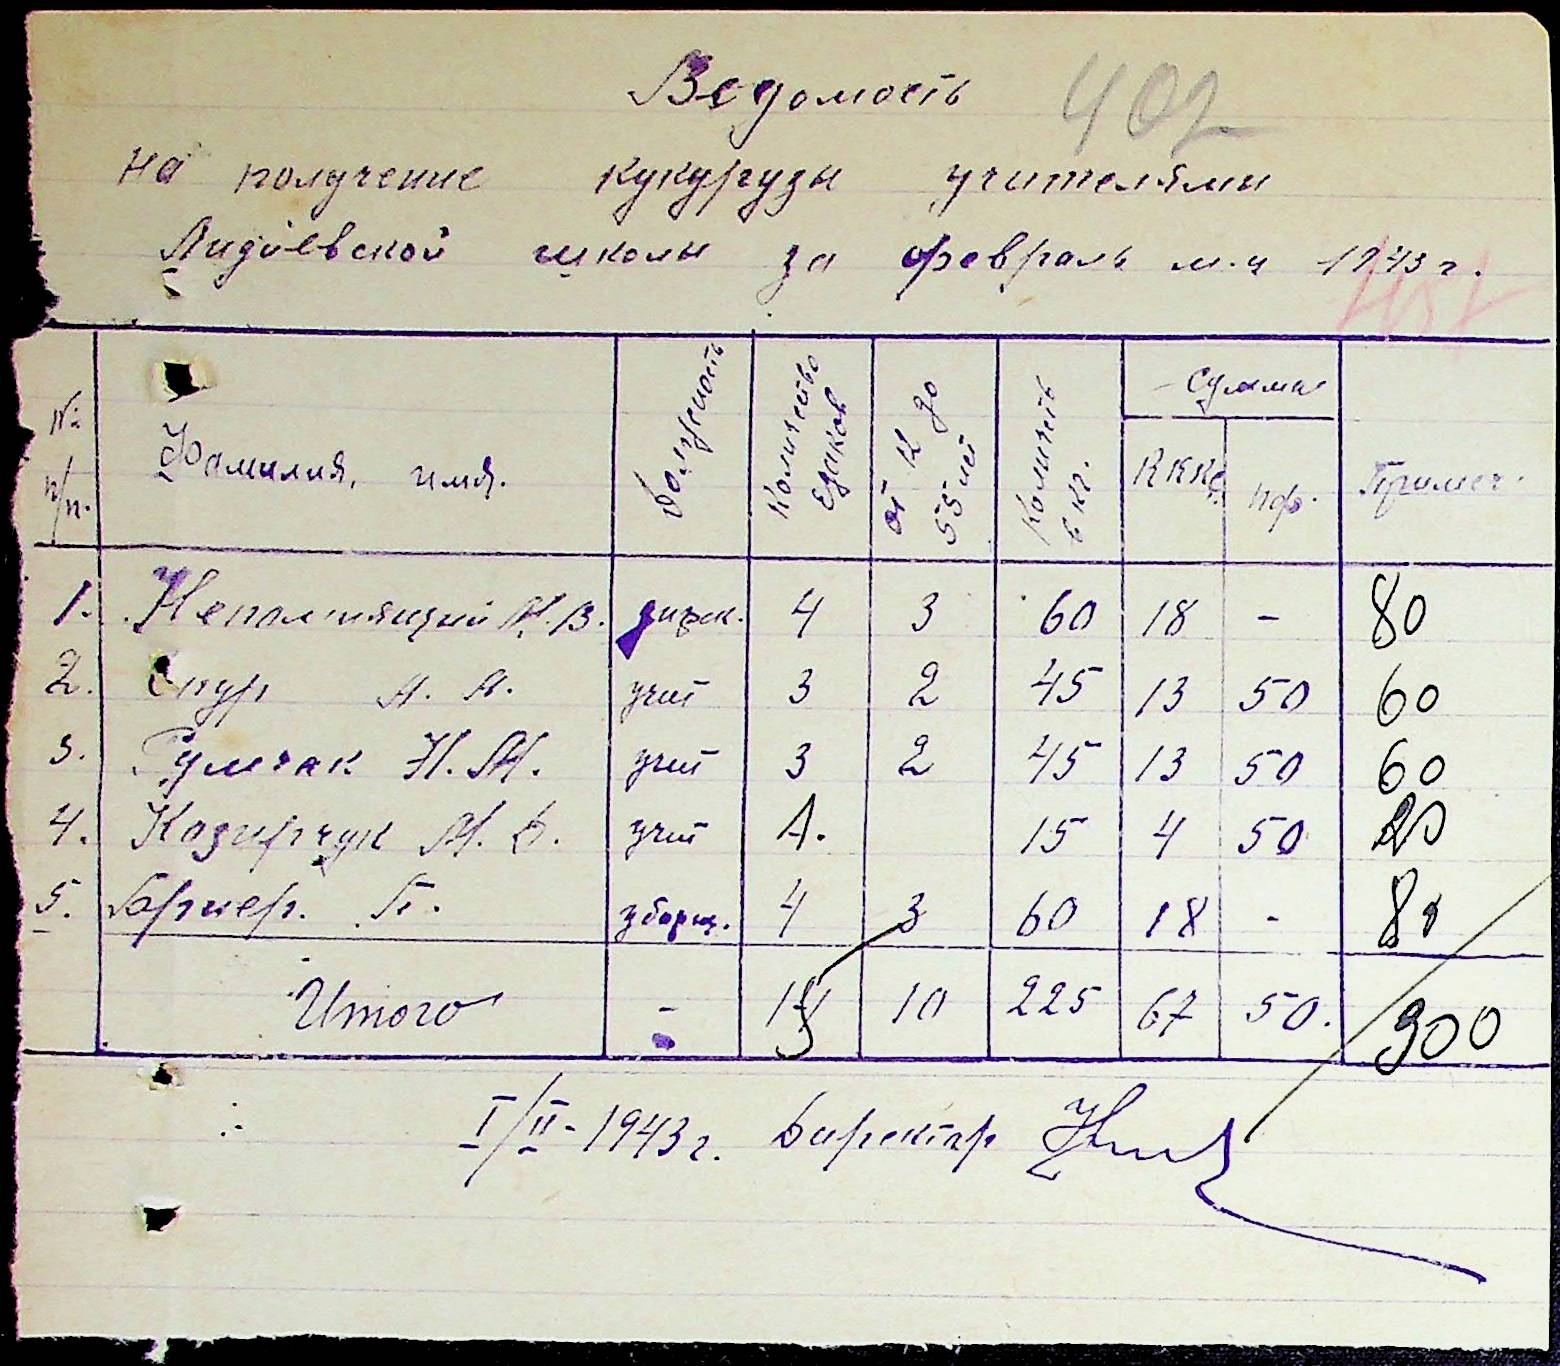 Ведомость 402
на получение кукурузы учителями
Лидіевской школы за февраль м-ц 1943 г.
№ п/п. Фамилия, имя. Должность Количество едаков от 12 до 55 лет Количеств в кг. Сумма Примеч.
RKKS пф.
1. Непомнящий А. В. дирек. 4 3 60 18 - 80
2. Спур А. А. учит 3 2 45 13 50 60
3. Румчак Н. М. учит 3 2 45 13 50 60
4. Козирчук М. Д. учит 1. 15 4 50 20
5. П. уборщ. 4 3 60 18 - 80
Итого - 15 10 225 67 50. 300
I/II-1943 г. Директор